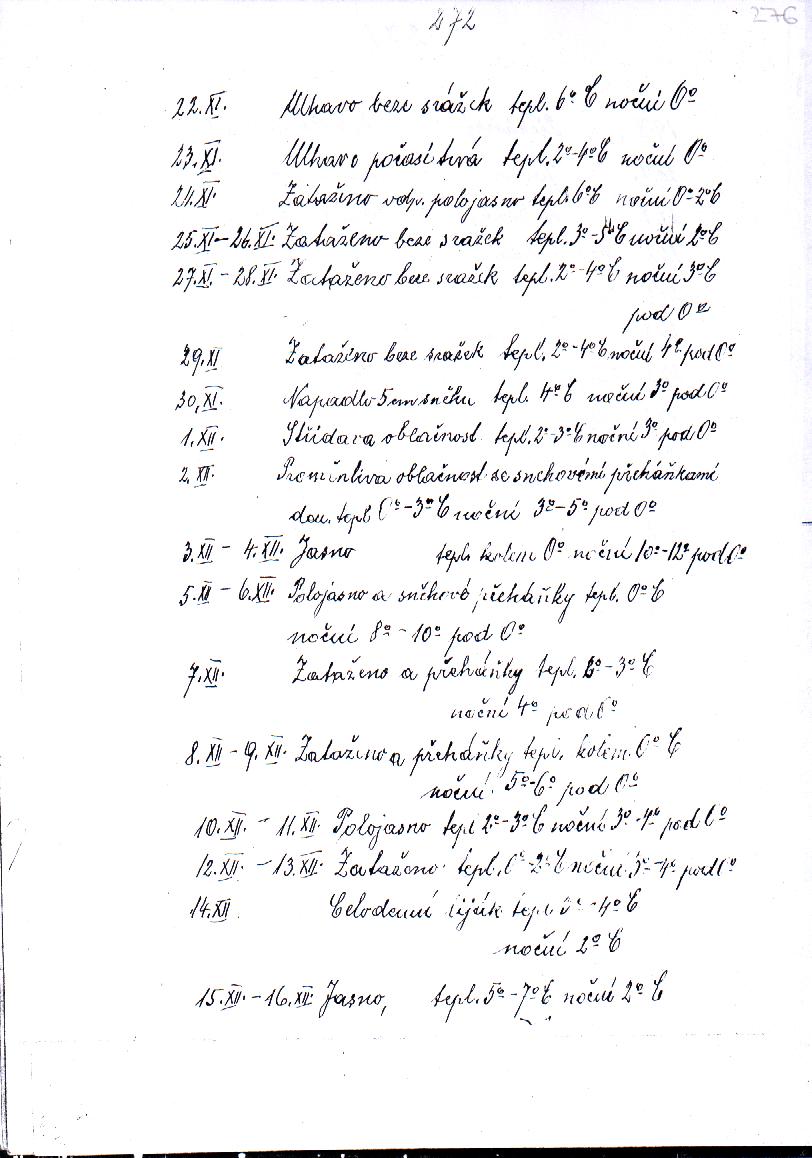 272
276
22.XI. Mlhavo beze srážek tepl. 6° C noční 0°
23.XI. Mlhavo počasí trvá tepl. 2°-4°C noční 0°
24.XI. Zataženo odp. polojasno tepl. 6°C noční 0°-2°C
25.XI.-26.XI. Zataženo beze srážek tepl. 3°-5°C noční 2°C
27.XI. - 28.XI. Zataženo beze srážek tepl. 2°-4°C noční 3°C
pod 0°
29.XI Zataženo beze srážek tepl. 2°-4°C noční 4° pod 0°
30.XI. Napadlo 5 cm sněhu tepl. 4°C noční 3° pod 0°
1.XII. Střídava oblačnost tepl. 2°-3°C noční 3° pod 0°
2.XII. Proměnliva oblačnost se sněhovémi přeháňkami
den. tepl 0°-3°C noční 3°-5° pod 0°
3.XII - 4.XII. Jasno tepl. kolem 0° noční 10°-12° pod 0°
5.XII - 6.XII. Polojasno a sněhové přeháňky tepl. 0°C
noční 8° - 10° pod 0°
7.XII. Zataženo a přeháňky tepl. -3°C
noční 4° pod 0°
8.XII - 9.XII. Zataženo a přeháňky tepl. kolem 0° C
noční 5°-6° pod 0°
10.XII. - 11.XII. Polojasno tepl 2°-3°C noční 3°-4° pod 0°
12.XII. - 13.XII. Zataženo tepl. 0°-2°C noční 3°-4° pod 0°
14.XII Celodenní liják tepl. -4°C
noční 2°C
15.XII. - 16.XII. Jasno, tepl. 5°-7°C noční 2° C